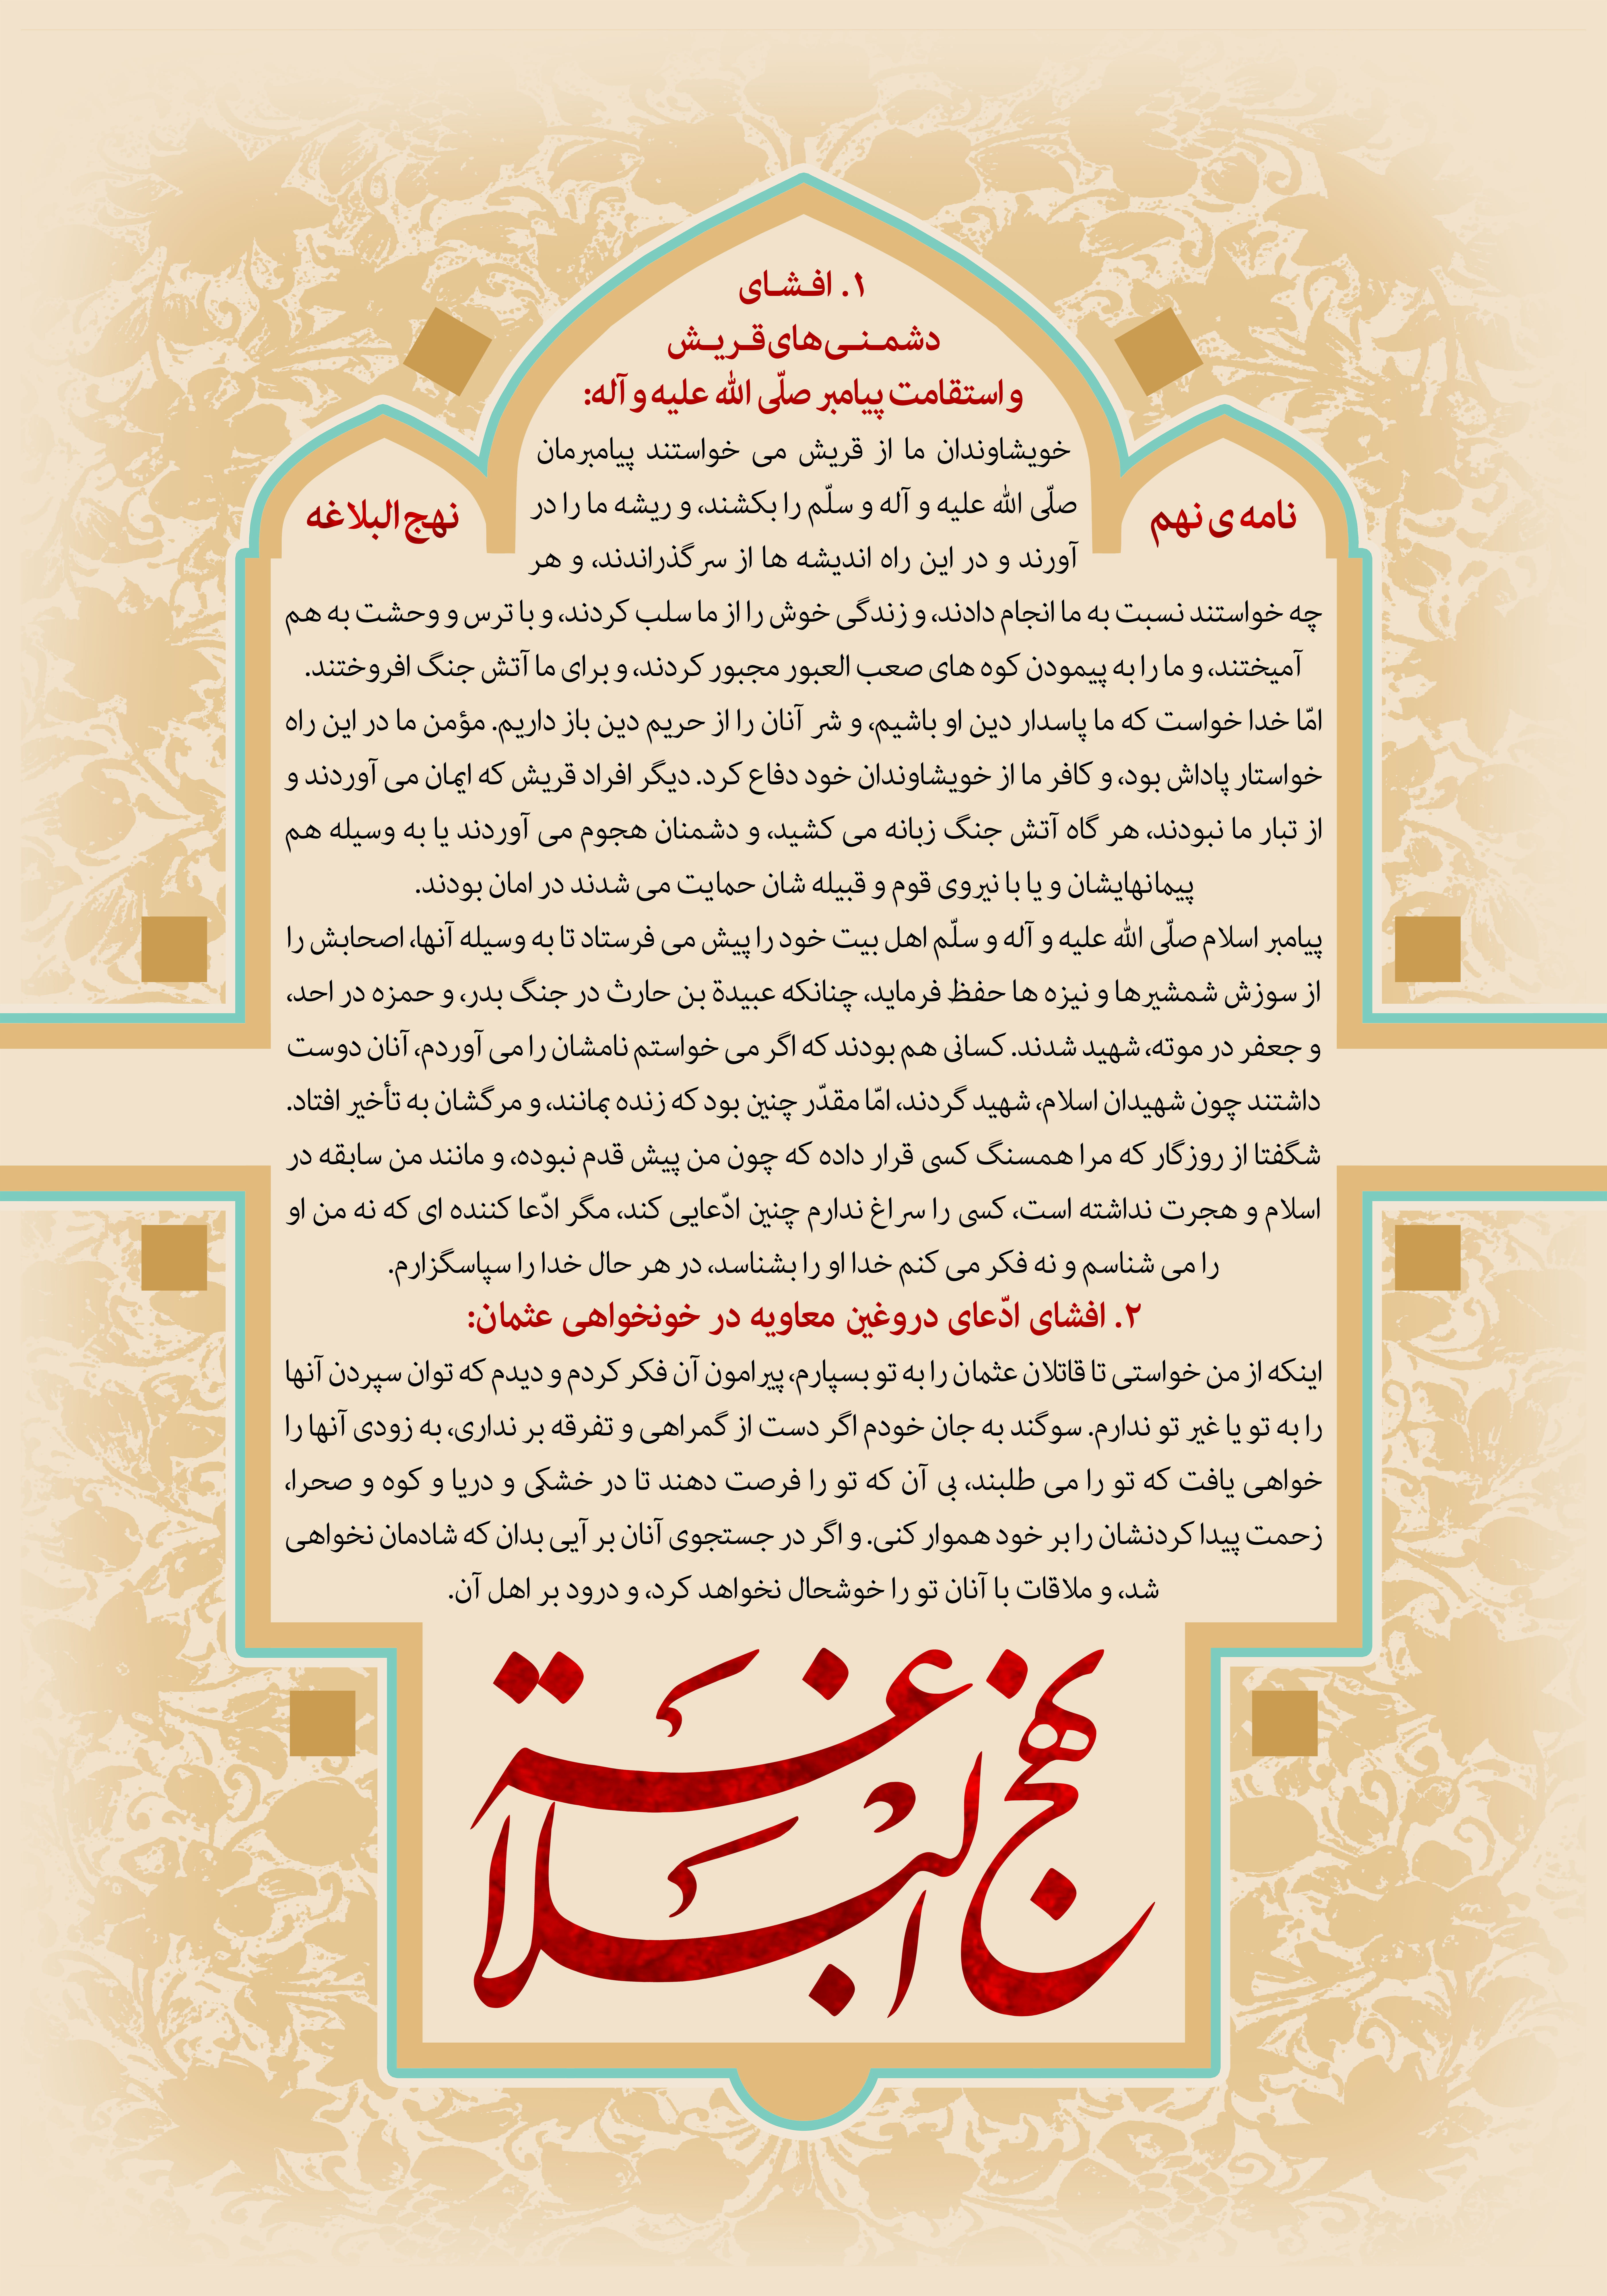 ۱. افشای
دشمنی‌های قریش
و استقامت پیامبر صلّی الله علیه و آله:
نامه‌ی نهم
نهج البلاغه
خویشاوندان ما از قریش می خواستند پیامبرمان
صلّی الله علیه و آله و سلّم را بکشند، و ریشه ما را در
آورند و در این راه اندیشه ها از سر گذراندند، و هر
چه خواستند نسبت به ما انجام دادند، و زندگی خوش را از ما سلب کردند، و با ترس و وحشت به هم
آمیختند، و ما را به پیمودن کوه های صعب العبور مجبور کردند، و برای ما آتش جنگ افروختند.
امّا خدا خواست که ما پاسدار دین او باشیم، و شر آنان را از حریم دین باز داریم. مؤمن ما در این راه
خواستار پاداش بود، و کافر ما از خویشاوندان خود دفاع کرد. دیگر افراد قریش که ایمان می آوردند و
از تبار ما نبودند، هر گاه آتش جنگ زبانه می کشید، و دشمنان هجوم می آوردند یا به وسیله هم
پیمانهایشان و یا با نیروی قوم و قبیله شان حمایت می شدند در امان بودند.
پیامبر اسلام صلّی الله علیه و آله و سلّم اهل بیت خود را پیش می فرستاد تا به وسیله آنها، اصحابش را
از سوزش شمشیرها و نیزه ها حفظ فرماید، چنانکه عبیدة بن حارث در جنگ بدر، و حمزه در احد،
و جعفر در موته، شهید شدند. کسانی هم بودند که اگر می خواستم نامشان را می آوردم، آنان دوست
داشتند چون شهیدان اسلام، شهید گردند، امّا مقدّر چنین بود که زنده بمانند، و مرگشان به تأخیر افتاد.
شگفتا از روزگار که مرا همسنگ کسی قرار داده که چون من پیش قدم نبوده، و مانند من سابقه در
اسلام و هجرت نداشته است، کسی را سراغ ندارم چنین ادّعایی کند، مگر ادّعا کننده ای که نه من او
را می شناسم و نه فکر می کنم خدا او را بشناسد، در هر حال خدا را سپاسگزارم.
۲. افشای ادّعای دروغین معاویه در خونخواهی عثمان:
اینکه از من خواستی تا قاتلان عثمان را به تو بسپارم، پیرامون آن فکر کردم و دیدم که توان سپردن آنها
را به تو یا غیر تو ندارم. سوگند به جان خودم اگر دست از گمراهی و تفرقه بر نداری، به زودی آنها را
خواهی یافت که تو را می طلبند، بی آن که تو را فرصت دهند تا در خشکی و دریا و کوه و صحرا،
زحمت پیدا کردنشان را بر خود هموار کنی. و اگر در جستجوی آنان بر آیی بدان که شادمان نخواهی
شد، و ملاقات با آنان تو را خوشحال نخواهد کرد، و درود بر اهل آن.
نهج البلاغة